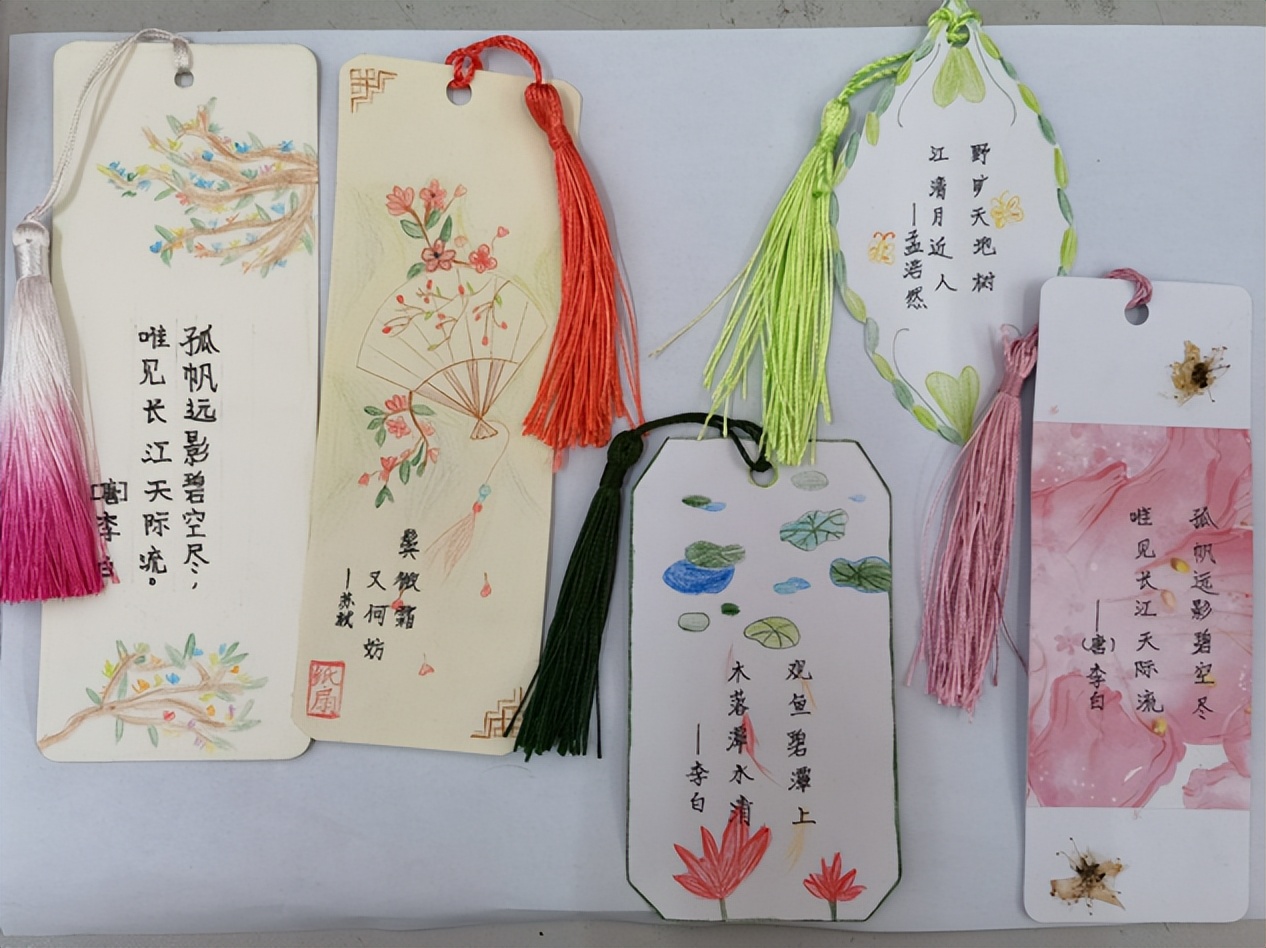 孤帆远影碧空尽，
唯见长江天际流。
[唐]李白
鬓微霜
又何妨
—苏轼
纸扇
野旷天地树
江清月近人
—孟浩然
观鱼碧潭上
木落潭水清
—李白
孤帆远影碧空尽
唯见长江天际流
—(唐)李白